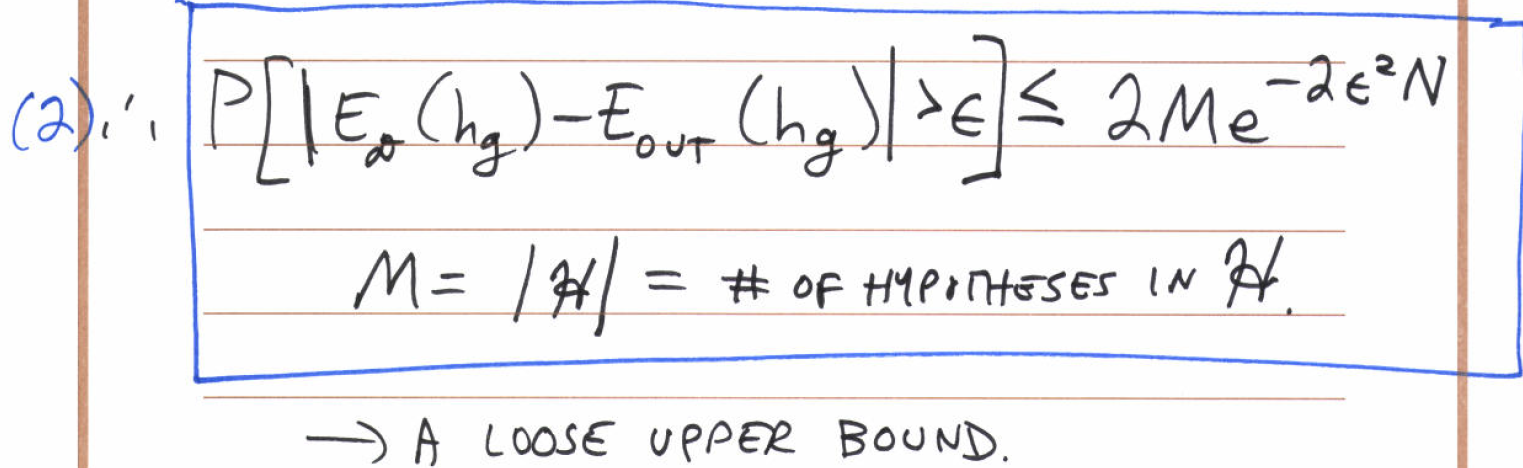 (2) ∴ P[|E_𝒟(h_g) − E_OUT(h_g)| > ϵ] ≤ 2Me^{−2ϵ²N}
M = |ℋ| = # OF HYPOTHESES IN ℋ.
→ A LOOSE UPPER BOUND.